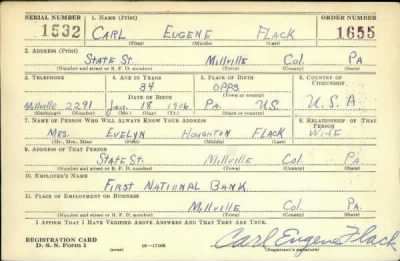 SERIAL NUMBER 1. NAME (Print) ORDER NUMBER
1532 CARL EUGENE FLACK 1655
(First) (Middle) (Last)
2. ADDRESS (Print)
STATE ST. Millville Col. PA
(Number and street or R. F. D. number) (Town) (County) (State)
3. TELEPHONE 4. AGE IN YEARS 5. PLACE OF BIRTH 6. COUNTRY OF CITIZENSHIP
34 OPPS
DATE OF BIRTH (Town or county)
Millville 2291 Jan. 18 1906 Pa. U.S. U.S.A.
(Exchange) (Number) (Mo.) (Day) (Yr.) (State) (Country)
7. NAME OF PERSON WHO WILL ALWAYS KNOW YOUR ADDRESS 8. RELATIONSHIP OF THAT PERSON
MRS. EVELYN HOUGHTON FLACK WIFE
(Mr., Mrs., Miss) (First) (Middle) (Last)
9. ADDRESS OF THAT PERSON
STATE ST. Millville Col. PA
(Number and street or R. F. D. number) (Town) (County) (State)
10. EMPLOYER'S NAME
FIRST NATIONAL BANK
11. PLACE OF EMPLOYMENT OR BUSINESS
Millville Col. PA.
(Number and street or R. F. D. number) (Town) (County) (State)
I AFFIRM THAT I HAVE VERIFIED ABOVE ANSWERS AND THAT THEY ARE TRUE.
REGISTRATION CARD
D. S. S. Form 1 (over) Carl Eugene Flack